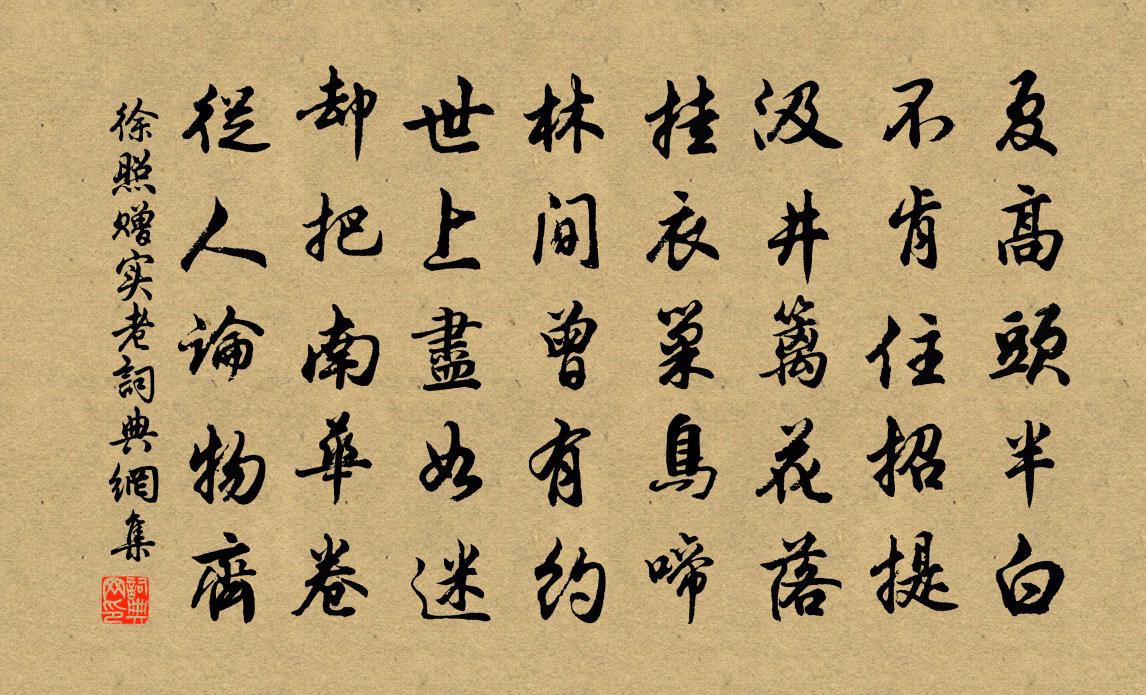 夏高頭半白
不肯住招提
汲井籬花落
挂衣巢鳥啼
林間曾有約
世上盡如迷
却把南華卷
從人論物齊
徐照赠实老詞典網集
詞典网印